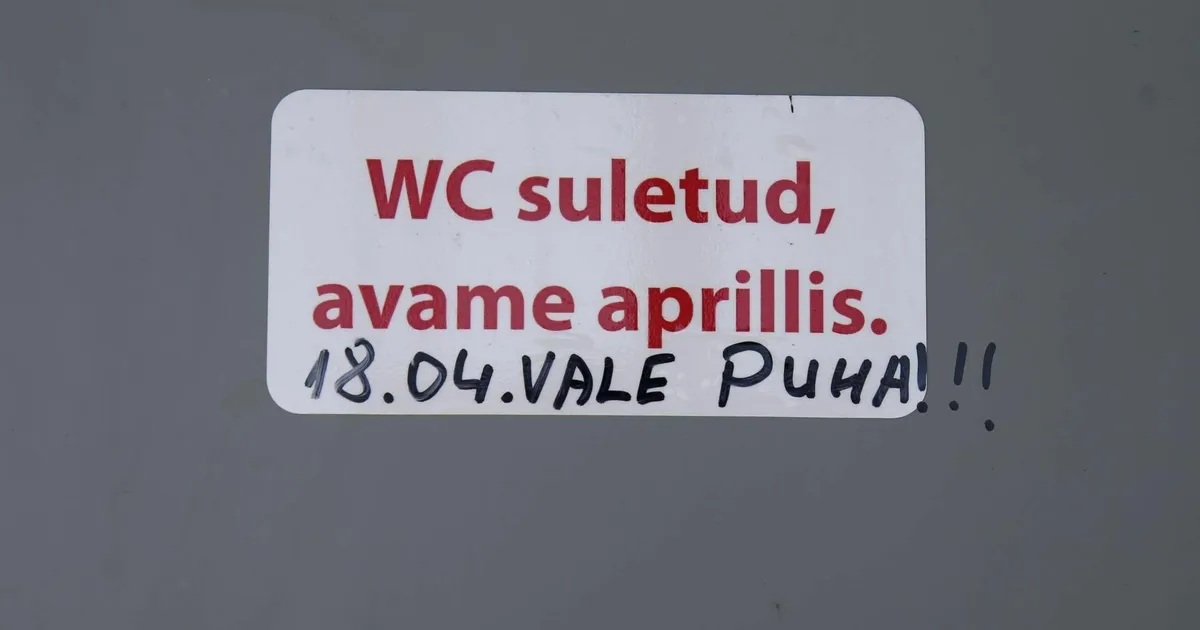 WC suletud,
avame aprillis.
18.04.VALE PUHA!!!